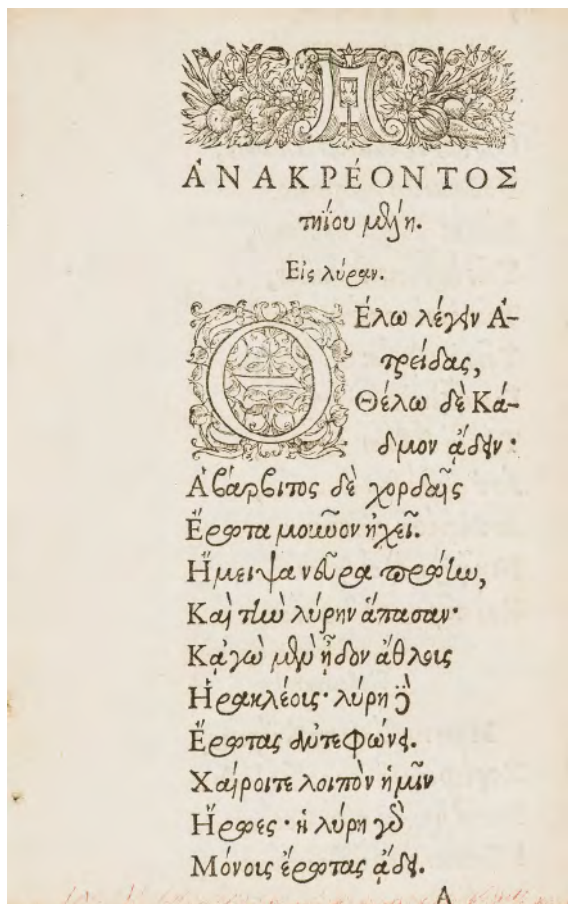 ἈΝΑΚΡΈΟΝΤΟΣ
τηΐου μέλη.
Εἰς λύραν.
ΘΈλω λέγειν Ἀ-
τρείδας,
Θέλω δὲ Κά-
δμον ᾄδειν·
Ἁ βάρβιτος δὲ χορδαῖς
Ἔρωτα μοῦνον ἠχεῖ.
Ἤμειψα νεῦρα πρώην,
Καὶ τὴν λύρην ἅπασαν·
Κᾀγὼ μὲν ᾖδον ἄθλους
Ἡρακλέους· λύρη δὲ
Ἔρωτας ἀντεφώνει.
Χαίροιτε λοιπὸν ἡμῖν
Ἥρωες· ἡ λύρη γὰρ
Μόνους ἔρωτας ᾄδει.
A